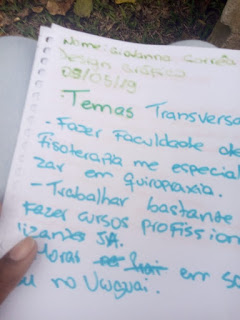 Nome: Giovanna Corrêa
Design Gráfico
09/05/19
Temas Transversa
- Fazer Faculdade de
Fisoterapia me especial
zar em quiropraxia.
- Trabalhar bastante
Fazer cursos profission
lizantes SA.
em so
no Uruguai.